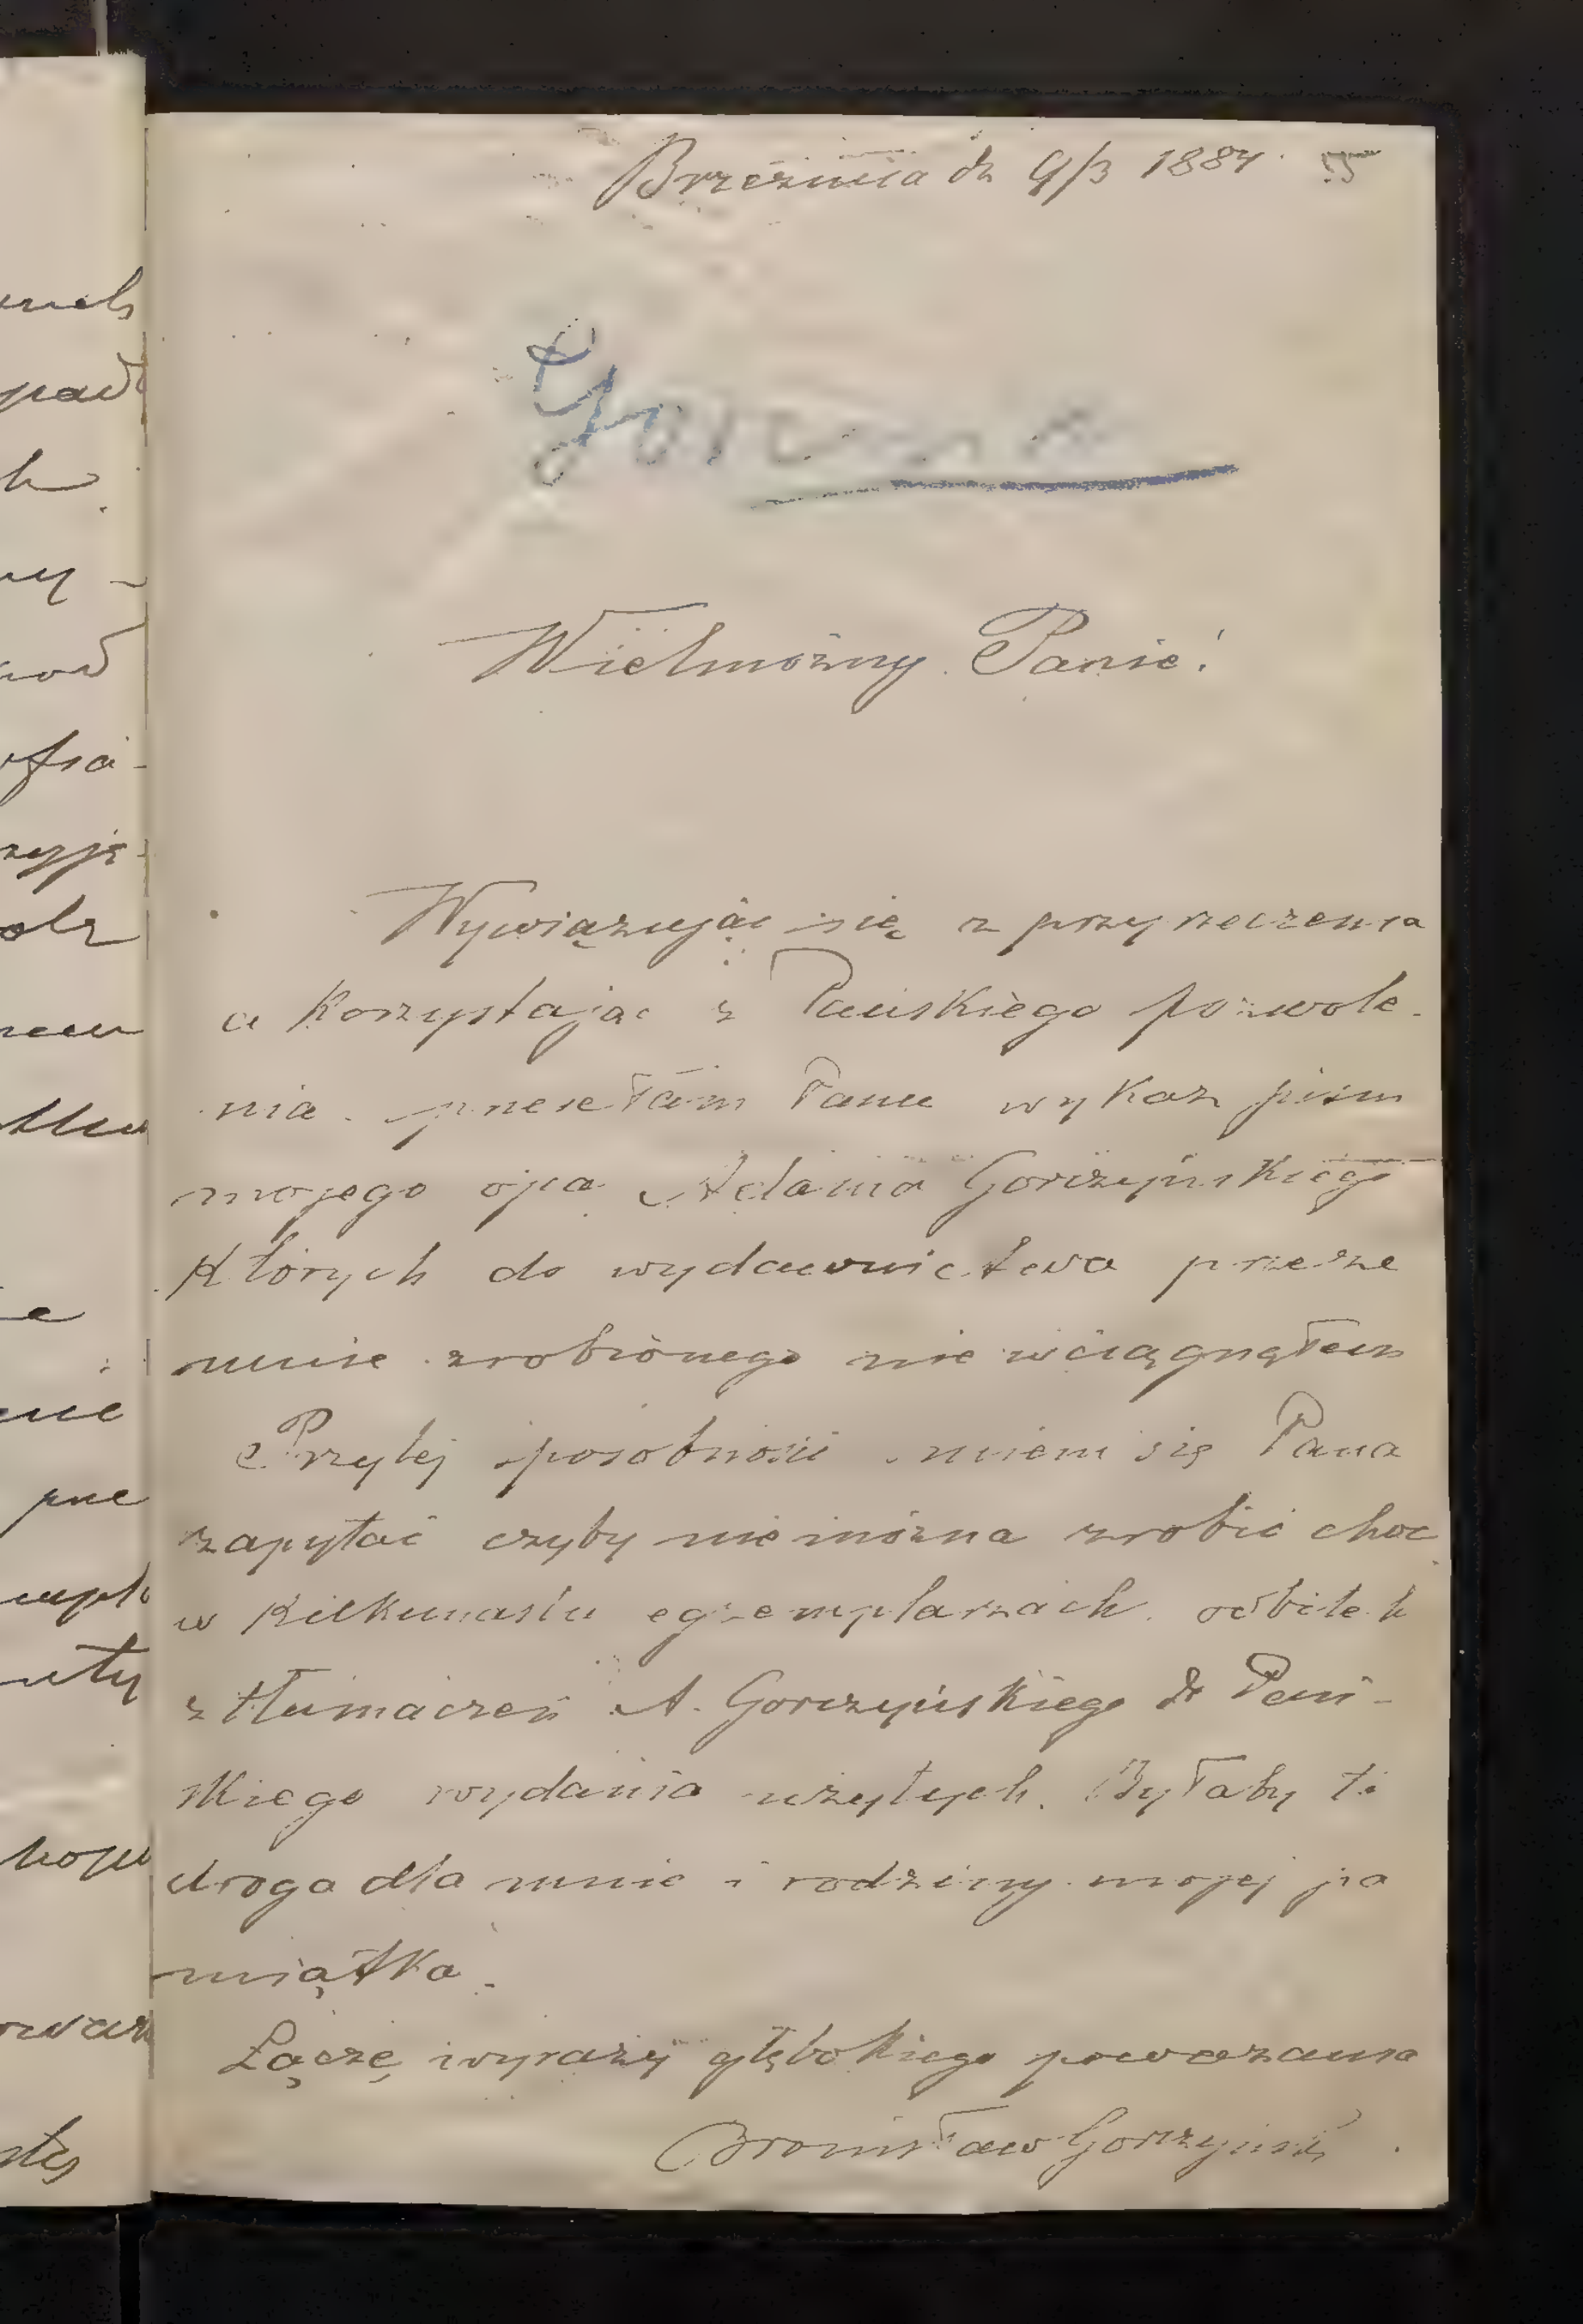 Brzeźnica dn 9/3 1884
Wielmożny Panie!
Wywiązując się z przyrzeczenia
a korzystając z Pańskiego pozwole-
nia przesełam Panu wykaz pism
mojego ojca Adama Gorczyńskiego
których do wydawnictwa przeze
mnie zrobionego nie wciągnąłem
Przytej sposobności śmiem się Pana
zapytać czyby nie można zrobić choć
w kilkunastu egzemplarzach odbitek
z tłumaczeń A. Gorczyńskiego do Pań-
skiego wydania użytych. Byłaby to
droga dla mnie i rodziny mojej pa
miątka.
Łączę wyrazy głębokiego poważania
Bronisław Gorczyński